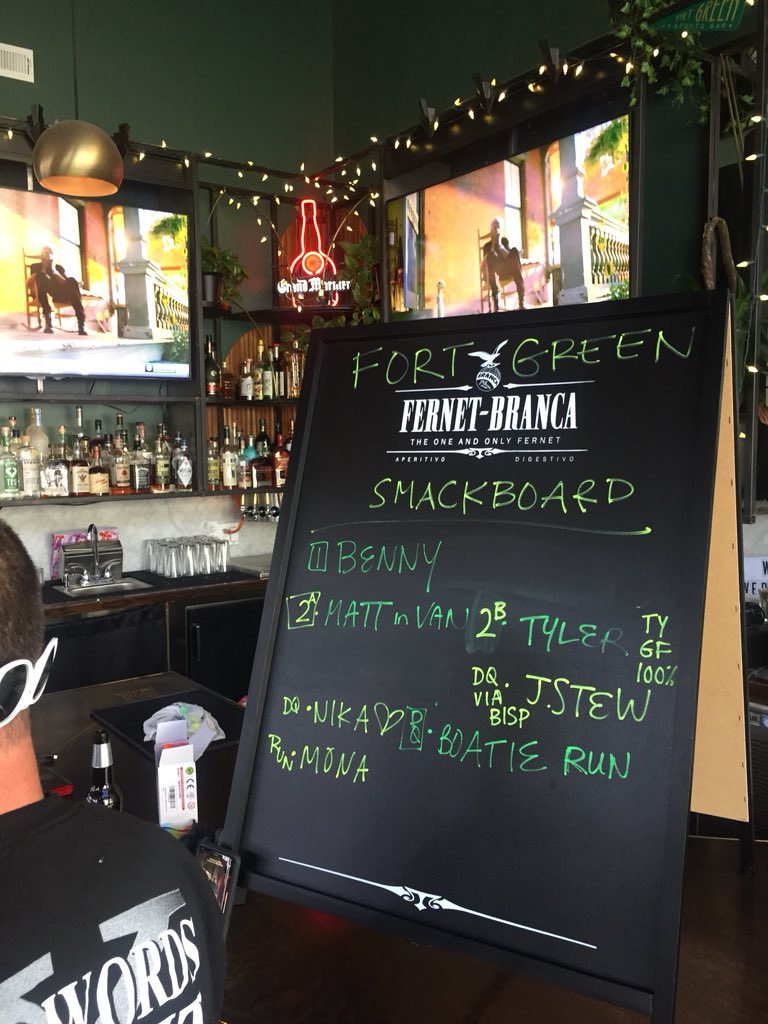 ART GREEN
SPORTS BAR
Grand Marnier
FORT GREEN
BRANCA
FERNET-BRANCA
THE ONE AND ONLY FERNET
APERITIVO DIGESTIVO
SMACKBOARD
1 BENNY
2A. MATT in VAN 2B. TYLER TY GF 100%
DQ VIA BISP . J.STEW
DQ . NIKA ♡ . BOATIE RUN
RUN . MONA
WORDS